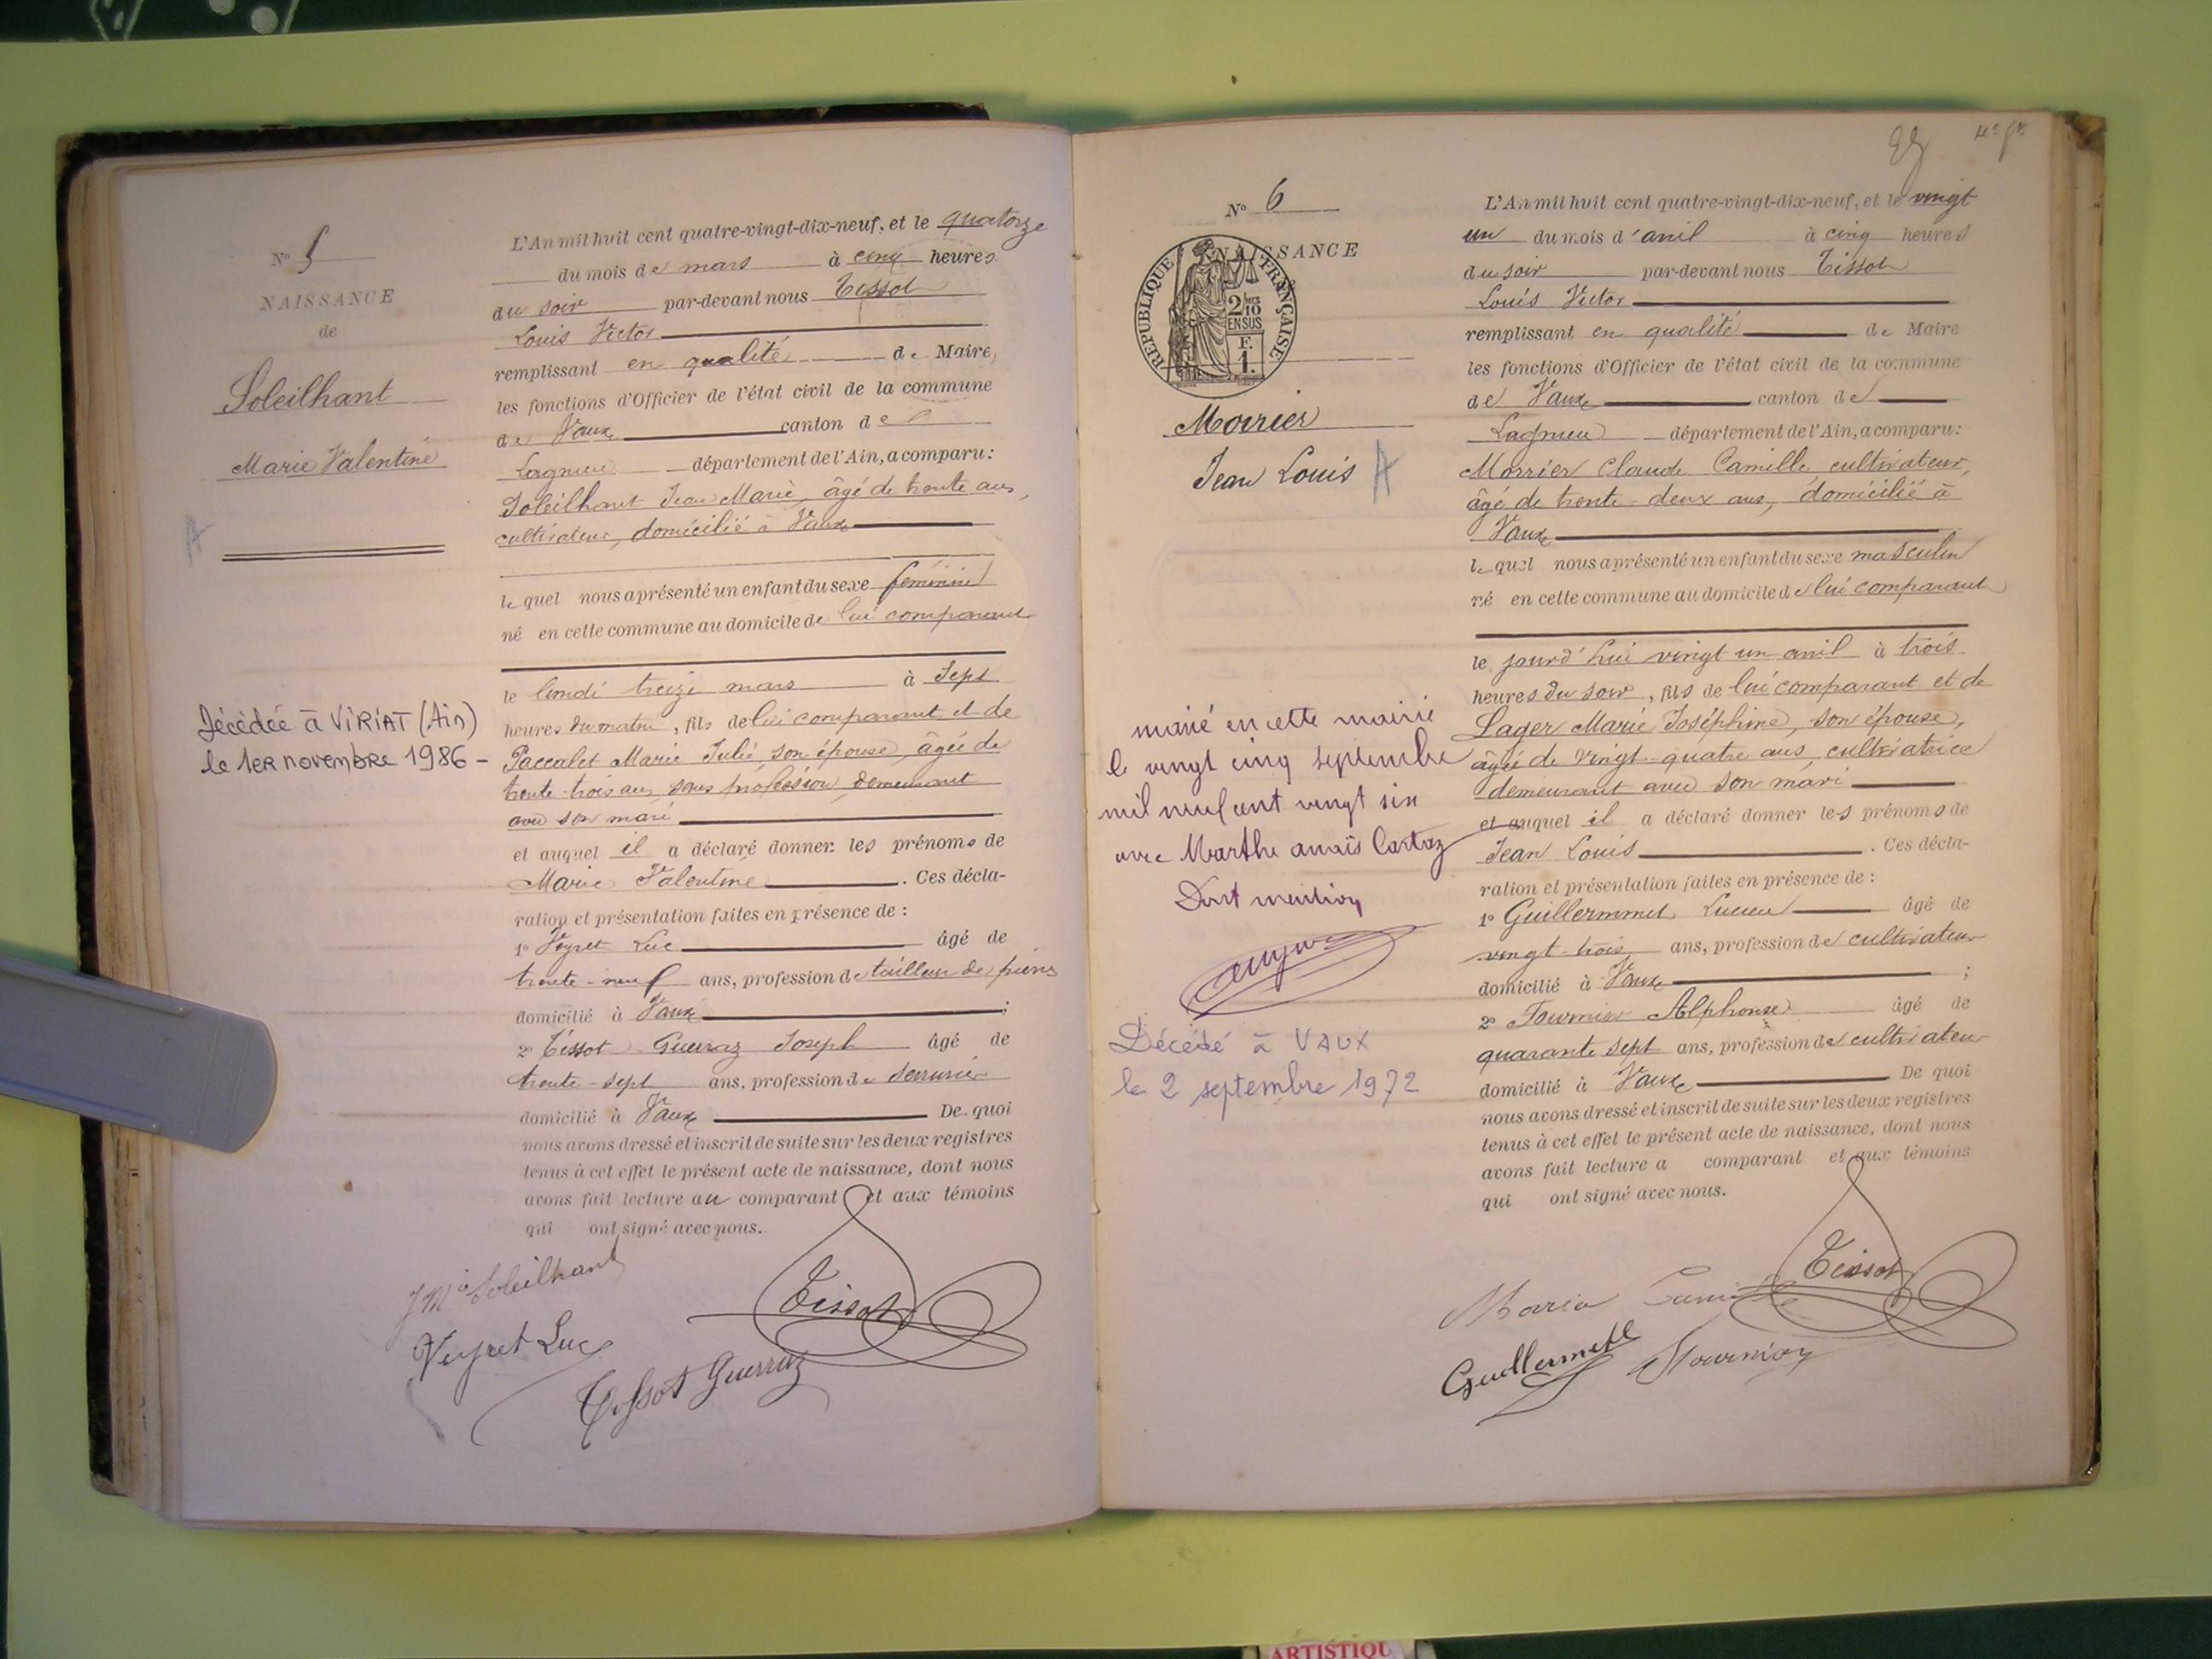 N° 5
NAISSANCE
de
Soleilhant
Marie Valentine
A
Décédée à VIRIAT (Ain)
le 1ER novembre 1986 -
L'An mil huit cent quatre-vingt-dix-neuf, et le quatorze
du mois de mars à cinq heures
du soir par-devant nous Tissot
Louis Victor
remplissant en qualité de Maire,
les fonctions d'Officier de l'état civil de la commune
de Vaux canton de
Lagnieu département de l'Ain, a comparu:
Soleilhant Jean Marie, âgé de trente ans,
cultivateur, domicilié à Vaux
le quel nous a présenté un enfant du sexe féminin
né en cette commune au domicile de lui comparant
le lundi treize mars à sept
heures du matin, fils de lui comparant et de
Paccalet Marie Julie, son épouse, âgée de
trente-trois ans, sans profession, demeurant
avec son mari
et auquel il a déclaré donner les prénoms de
Marie Valentine. Ces décla-
ration et présentation faites en présence de :
1° Veyret Luc âgé de
trente-neuf ans, profession de tailleur de pierres
domicilié à Vaux ;
2° Tissot Guerraz Joseph âgé de
trente-sept ans, profession de serrurier
domicilié à Vaux De quoi
nous avons dressé et inscrit de suite sur les deux registres
tenus à cet effet le présent acte de naissance, dont nous
avons fait lecture au comparant et aux témoins
qui ont signé avec nous.
J Ma Soleilhant
Tissot
Veyret Luc
Tissot Guerraz
N° 6
NAISSANCE
REPUBLIQUE FRANÇAISE
2/10
EN SUS
F.
1.
Morrier
Jean Louis A
marié en cette mairie
le vingt cinq septembre
mil neuf cent vingt six
avec Marthe anaïs Cartaz
Dont mention
Décédé à VAUX
le 2 septembre 1972
L'An mil huit cent quatre-vingt-dix-neuf, et le vingt
un du mois d'avril à cinq heures
du soir par-devant nous Tissot
Louis Victor
remplissant en qualité de Maire
les fonctions d'Officier de l'état civil de la commune
de Vaux canton de
Lagnieu département de l'Ain, a comparu:
Morrier Claude Camille cultivateur,
âgé de trente-deux ans, domicilié à
Vaux
le quel nous a présenté un enfant du sexe masculin
né en cette commune au domicile de lui comparant
le jourd'hui vingt un avril à trois
heures du soir, fils de lui comparant et de
Lager Marie Joséphine, son épouse,
âgée de vingt-quatre ans, cultivatrice
demeurant avec son mari
et auquel il a déclaré donner les prénoms de
Jean Louis. Ces décla-
ration et présentation faites en présence de :
1° Guillermet Lucien âgé de
vingt-trois ans, profession de cultivateur
domicilié à Vaux ;
2° Fournier Alphonse âgé de
quarante sept ans, profession de cultivateur
domicilié à Vaux De quoi
nous avons dressé et inscrit de suite sur les deux registres
tenus à cet effet le présent acte de naissance, dont nous
avons fait lecture a comparant et aux témoins
qui ont signé avec nous.
Tissot
Guillermet Fournier
ARTISTIQU